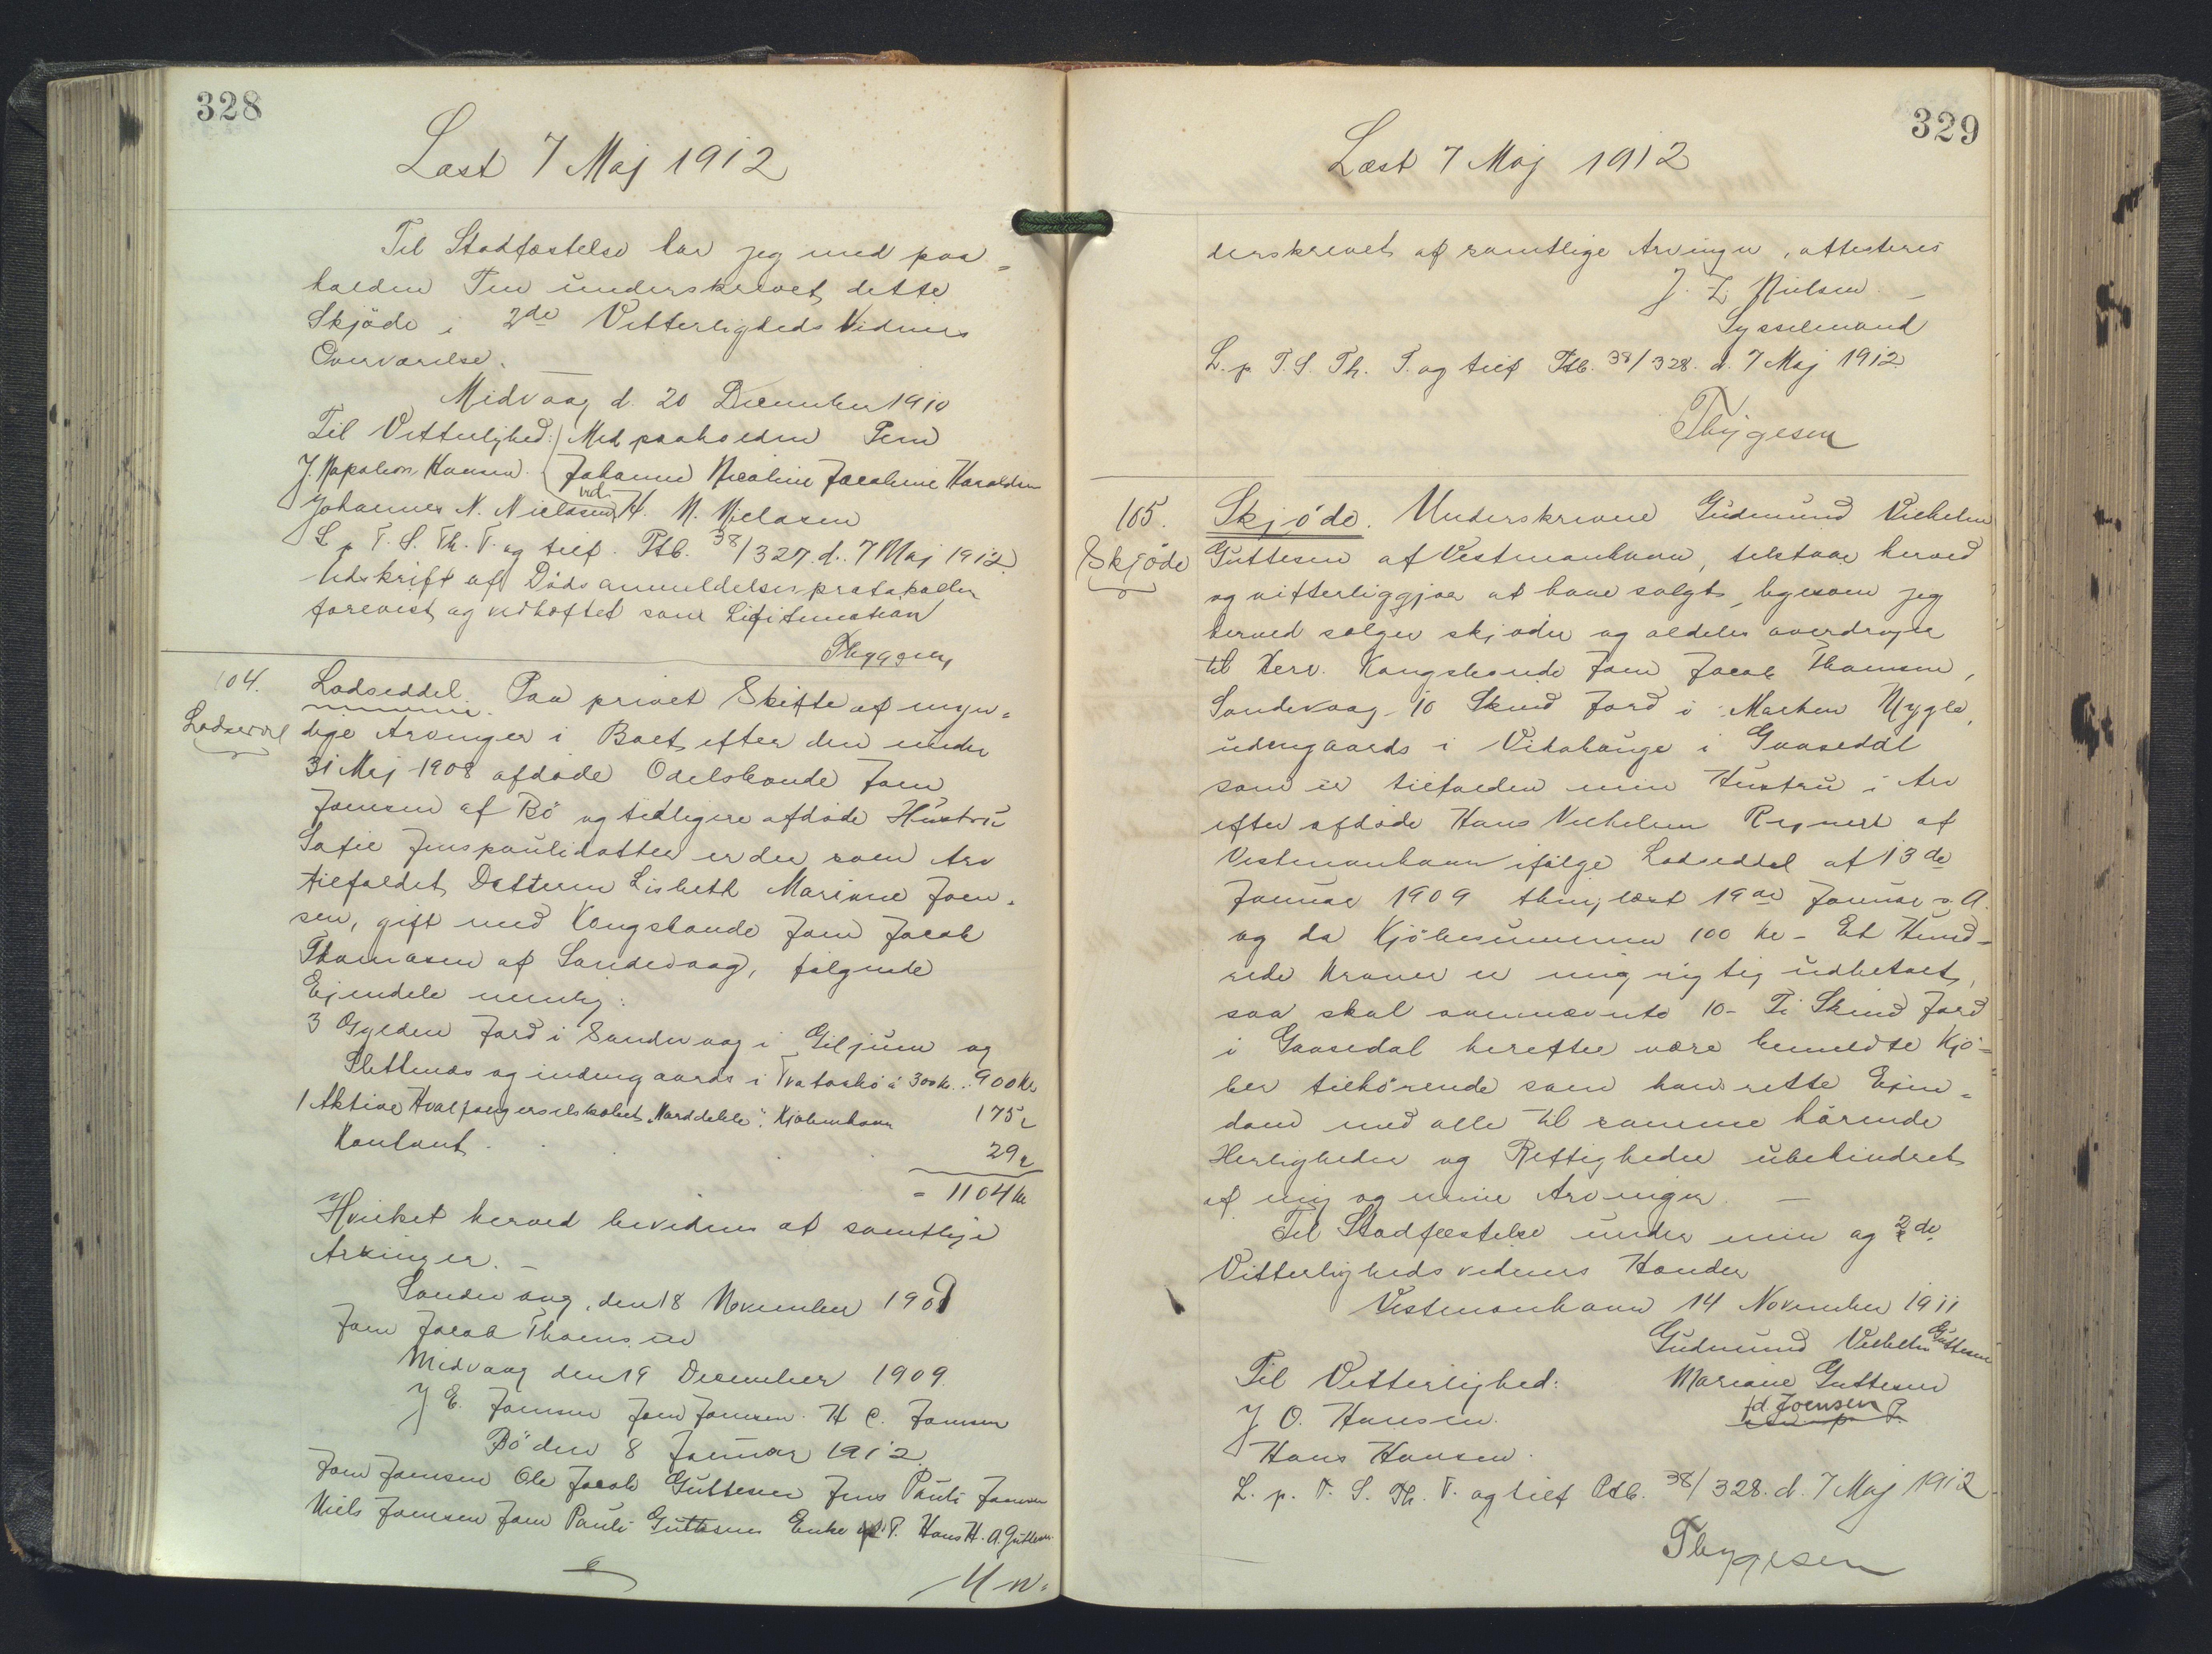 328
Læst 7 Maj 1912
Til Stadfæstelse har jeg med paa=
holden Pen underskrevet dette
Skjøde i 2de Vitterligheds Vidners
Overværelse.
Midvaag d. 20 December 1910
Til Vitterlighed: Med paaholden Pen
J. Napoleon Hansen. Johanne Nicoline Jacobine Haraldsen
Johannes N. Nielasen ved H. N. Nielasen
L. p. T. S. Th. T. og tilf. Ptb. 38/327. d. 7 Maj 1912.
Udskrift af Dødsanmeldelsesprotokollen
forevist og vedhæftet som Legitimation
Thygesen
104. Lodseddel. Paa privat Skifte af myn=
Lodseddel dige Arvinger i Boet efter den under
31 Maj 1908 afdøde Odelsbonde Joen
Joensen af Bö og tidligere afdøde Hustru
Sofie Jenspaulidatter er der som Arv
tilfaldet Datteren Lisbeth Marianne Joen=
sen, gift med Kongsbonde Joen Jacob
Thomasen af Sandevaag, følgende
Ejendele nemlig:
3 Gylden Jord i Sandevaag i Giljum og
Slettenæs og indengaards i Tvatoskö á 300 Kr. .. 900 Kr
1 Aktie i Hvalfangerselskabet "Norddeble". Kjøbenhavn 175 "
Kontant . . . 29 "
= 1104 Kr
Hvilket herved bevidnes af samtlige
Arvinger. —
Sandevaag, den 18 November 1909
Joen Jacob Thomsen
Midvaag den 19 December 1909.
J E. Joensen Joen Joensen. H C. Joensen
Bö den 8 Januar 1912.
Joen Joensen Ole Jacob Guttesen Jens Pauli Joensen
Niels Joensen Joen Pauli Guttesens Enke P. Hans H. A. Guttesen
Un=
329
Læst 7 Maj 1912
derskrevet af samtlige Arvinger, attesteres
J. Z Nielsen. —
Sysselmand
L. p. T. S. Th. T. og tilf Ptb. 38/328. d. 7 Maj 1912
Thygesen
105. Skjöde. Underskrevne Gudmund Vilhelm
Skjöde Guttesen af Vestmanhavn, tilstaar herved
og vitterliggjør at have solgt, ligesom jeg
herved sælger skjøder og aldeles overdrager
til Herr. Kongsbonde Joen Jacob Thomsen,
Sandevaag 10 Skind Jord i Marken Nygla,
udengaards i Vidahauge i Gaasedal
som er tilfalden min Hustru i Arv
efter afdøde Hans Vilhelm Reinert af
Vestmanhavn ifølge Lodseddel af 13de
Januar 1909 thinglæst 19de Januar s. A.
og da Kjöbesummen 100 Kr - Et Hund=
rede Kroner er mig rigtig udbetalt,
saa skal ovennævnte 10 - Ti Skind Jord
i Gaasedal herefter være bemeldte Kjö=
ber tilhörende som hans rette Ejen=
dom med alle til samme hörende
Herligheder og Rettigheder ubehindret
af mig og mine Arvinger. —
Til Stadfæstelse under min og 2de
Vitterlighedsvidners Hænder
Vestmanhavn 14 November 1911
Gudmund Vilhelm Guttesen
Til Vitterlighed: Mariane Guttesen
J O. Hansen. fd. Joensen
Hans Hansen.
L. p. T. S. Th. T. og tilf Ptb. 38/328. d. 7 Maj 1912
Thygesen